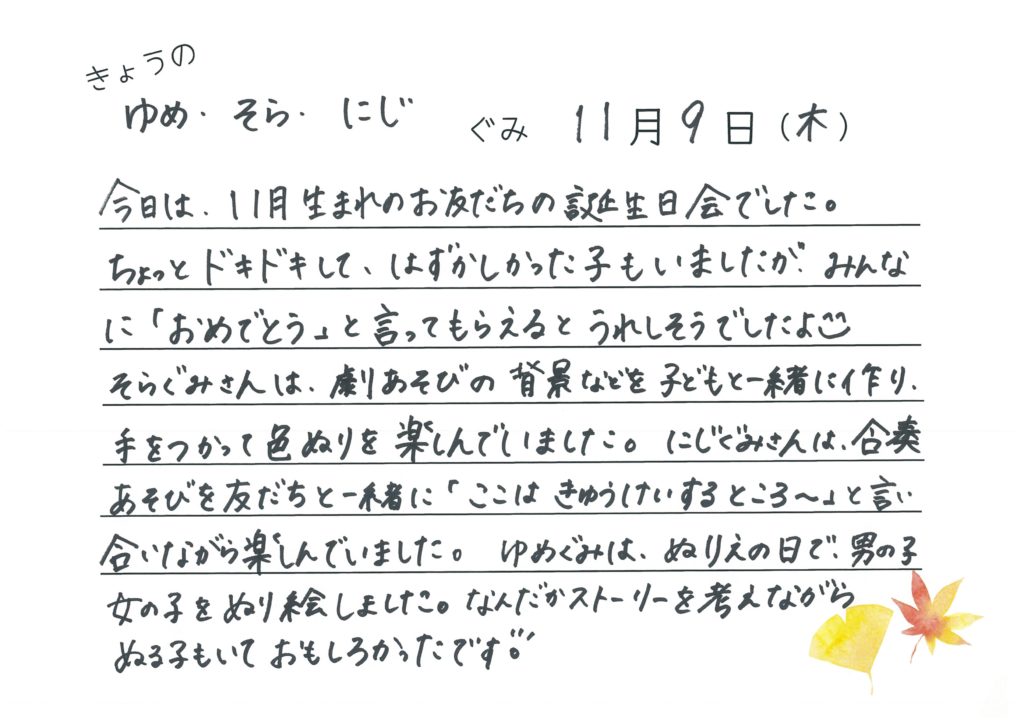 きょうの
ゆめ・そら・にじ ぐみ 11月9日(木)
今日は、11月生まれのお友だちの誕生日会でした。
ちょっとドキドキして、はずかしかった子もいましたが、みんな
に「おめでとう」と言ってもらえるとうれしそうでしたよ☺
そらぐみさんは、劇あそびの背景などを子どもと一緒に作り、
手をつかって色ぬりを楽しんでいました。にじぐみさんは、合奏
あそびを友だちと一緒に「ここはきゅうけいするところ〜」と言い
合いながら楽しんでいました。ゆめぐみは、ぬりえの日で、男の子
女の子をぬり絵しました。なんだかストーリーを考えながら
ぬる子もいておもしろかったです。